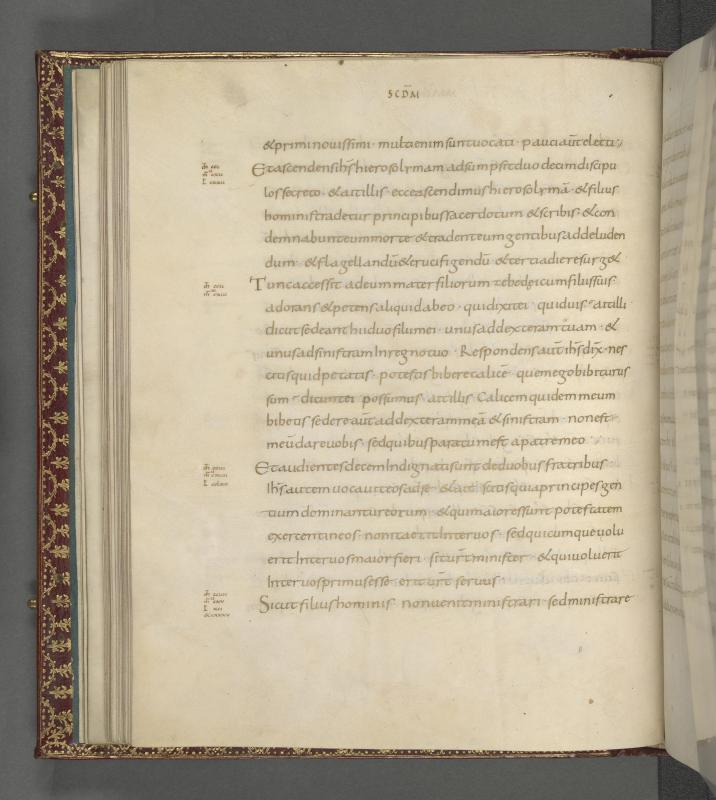 SCDM
&priminouissimi · multienimsuntuocati · pauciaūtelecti
Etascendensihs̄hierosolymam adsumpsitduodecimdiscipu
lossecreto · &aitillis · ecceascendimushierosolymā · &filius
hoministradetur principibussacerdotum &scribis · &con
demnabunteummorte &tradenteumgentibusaddeluden
dum · &flagellandū&crucifigendū · &tertiadieresurg&
Tuncaccessit adeummaterfiliorum zebedeicumfiliissuis
adorans&petensaliquidabeo · quidixitei quiduis · aitilli
dicutsedeanthiiduofiliimei · unusaddexteramtuam · &
unusadsinistramInregnotuo · Respondensaut̄ihs̄dix̄ · nes
citisquidpetatis · potestisbiberecalicē quemegobibiturus
sum · dicuntei possumus · aitillis Calicemquidemmeum
bibetis sedereaut̄addexterammeā&sinistram · nonest
meūdareuobis · sedquibusparatumest apatremeo
EtaudientesdecemIndignatisunt deduobusfratribus
Ihs̄autemuocauiteosadse · &ait scitisquiaprincipesgen
tium dominantureorum · &quimaioressunt potestatem
exercentineos · nonitaeritInteruos · sedquicumqueuolu
eritInteruosmaiorfieri · situr̄tminister · &quiuoluerit
Interuosprimusesse · erit ur̄t seruus ·
Sicutfiliushominis · nonuenitministrari · sedministrare